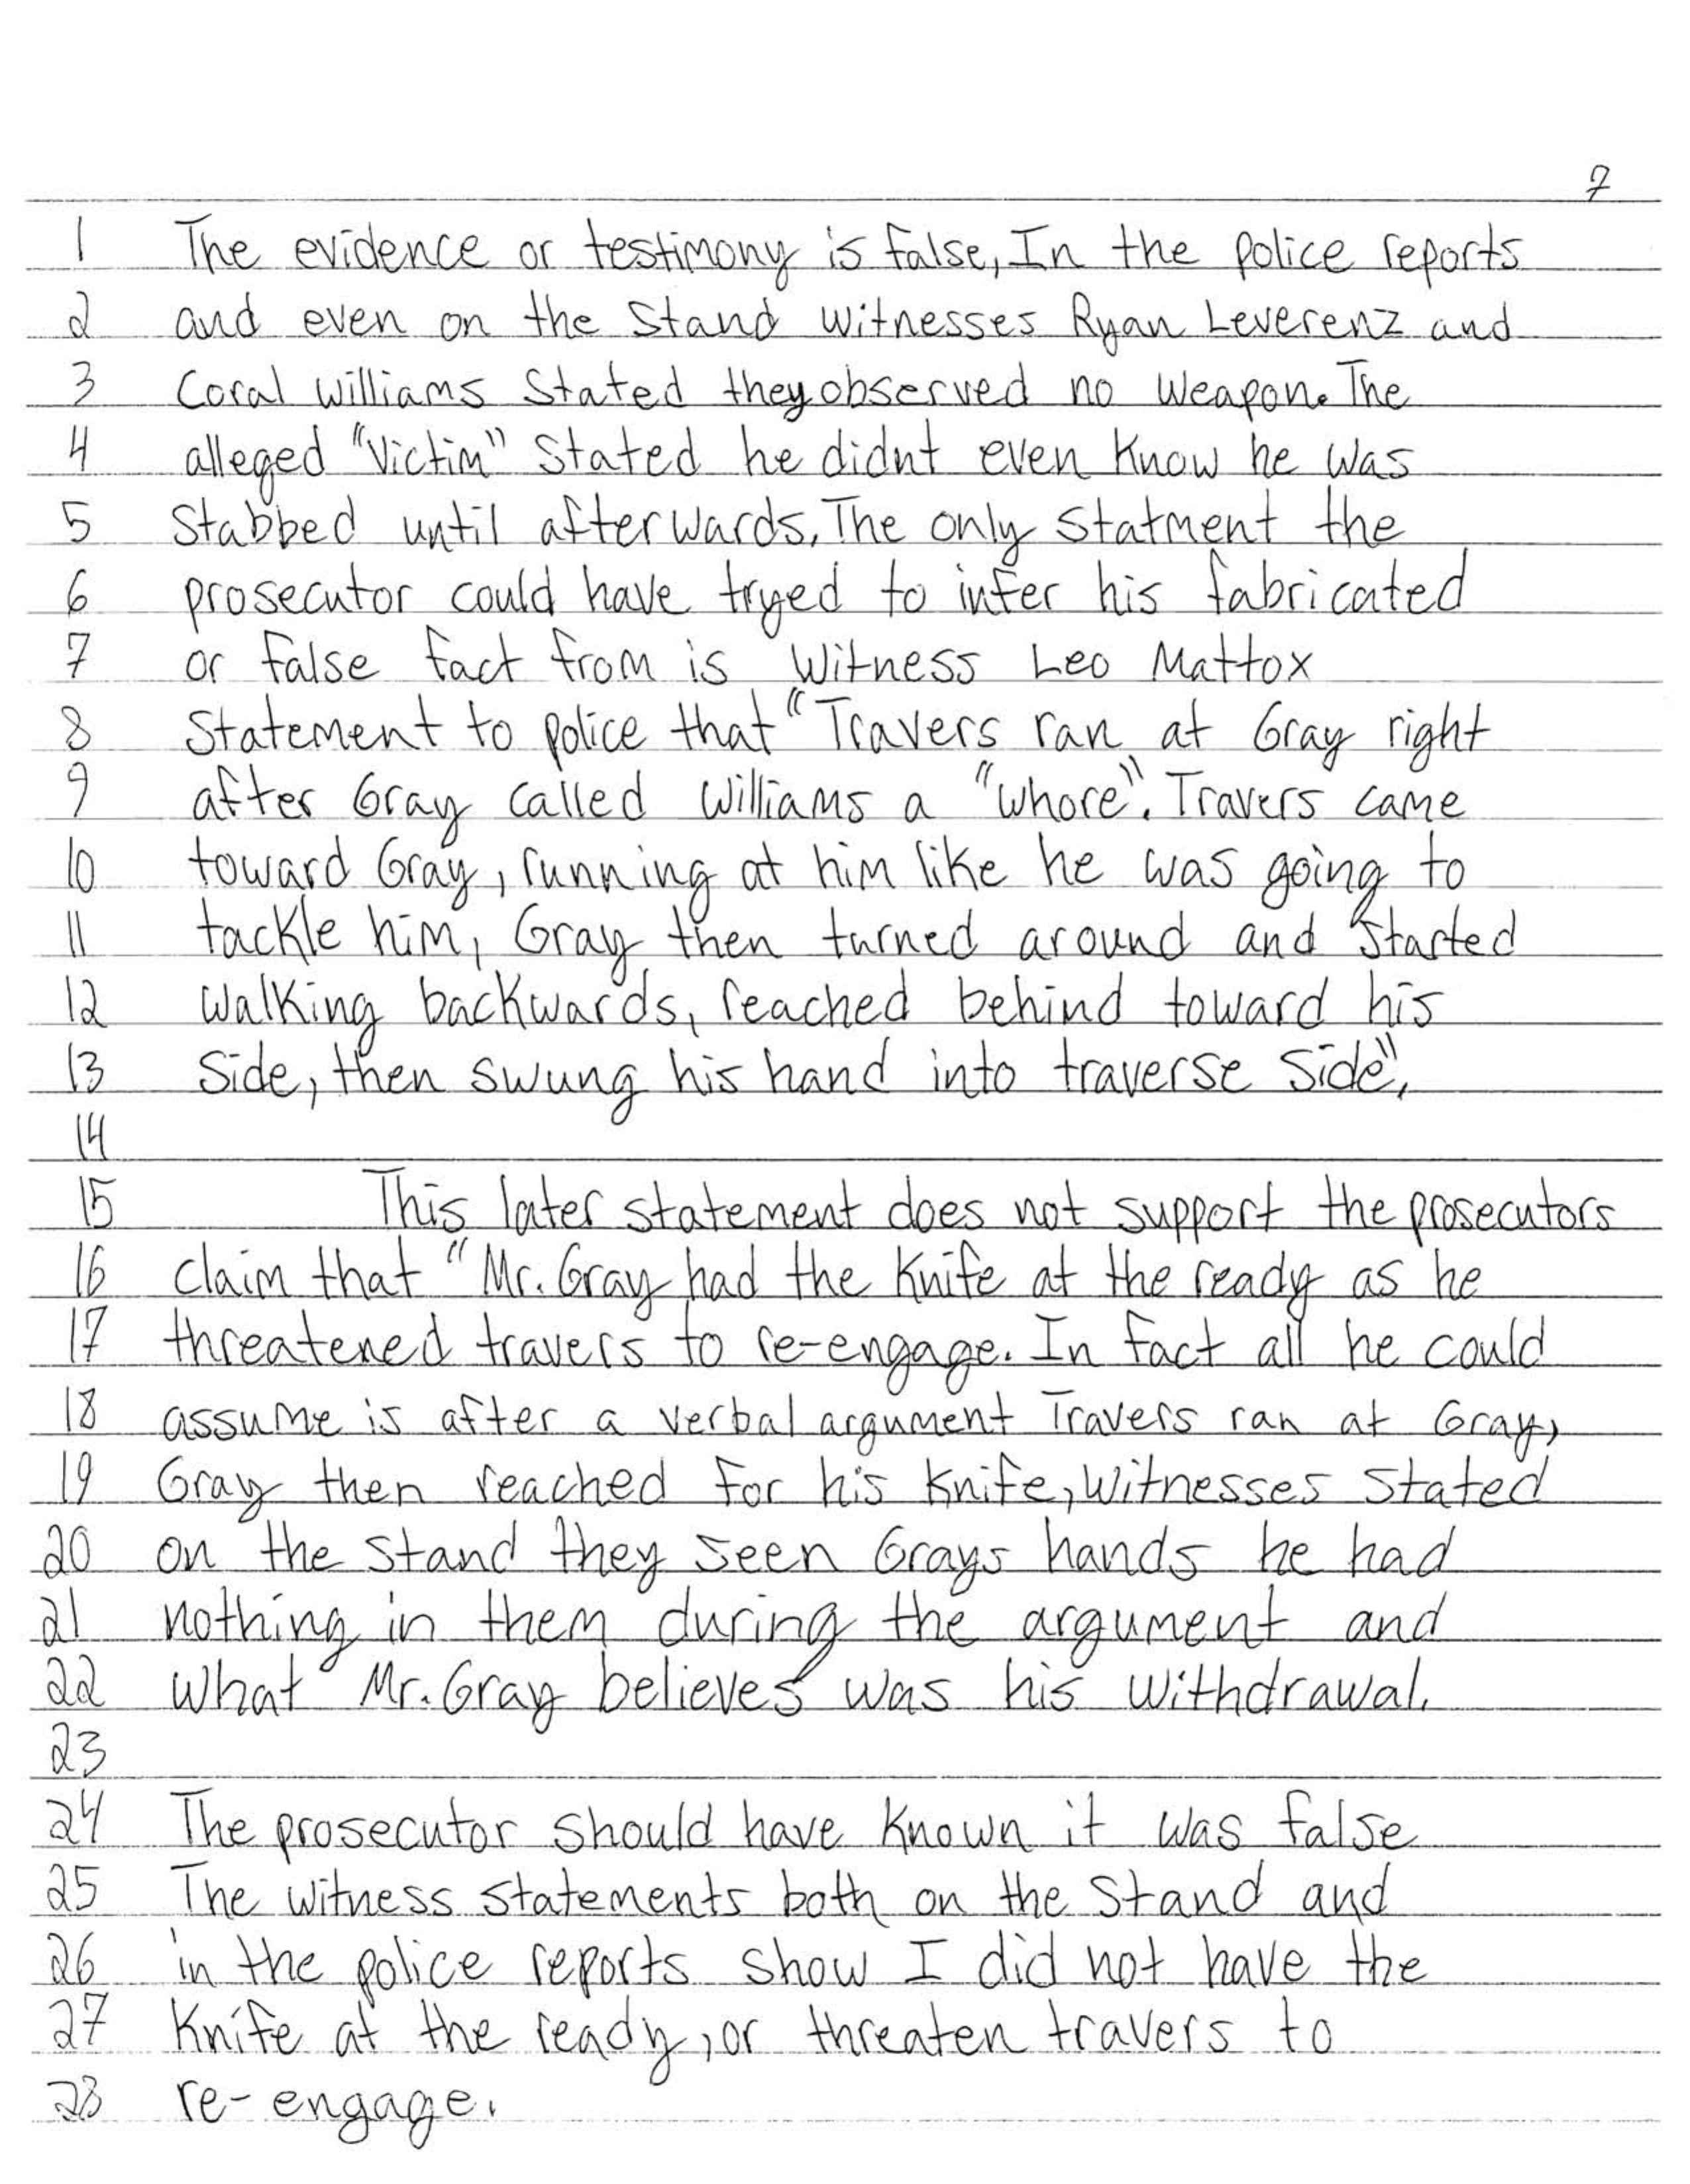 7
1 The evidence or testimony is false, In the police reports
2 and even on the Stand witnesses Ryan Leverenz and
3 Coral Williams Stated they observed no weapon. The
4 alleged "Victim" Stated he didnt even Know he was
5 Stabbed until afterwards. The only statment the
6 prosecutor could have tryed to infer his fabricated
7 or false fact from is Witness Leo Mattox
8 Statement to police that "Travers ran at Gray right
9 after Gray called Williams a "whore". Travers came
10 toward Gray, running at him like he was going to
11 tackle him, Gray then turned around and Started
12 walking backwards, reached behind toward his
13 Side, then swung his hand into traverse Side",
14
15 This later statement does not support the prosecutors
16 claim that "Mr. Gray had the Knife at the ready as he
17 threatened travers to re-engage. In fact all he could
18 assume is after a verbal argument Travers ran at Gray,
19 Gray then reached for his Knife, Witnesses Stated
20 on the Stand they seen Grays hands he had
21 nothing in them during the argument and
22 what Mr. Gray believes was his withdrawal.
23
24 The prosecutor should have Known it was false
25 The witness statements both on the Stand and
26 in the police reports show I did not have the
27 Knife at the ready, or threaten travers to
28 re-engage.